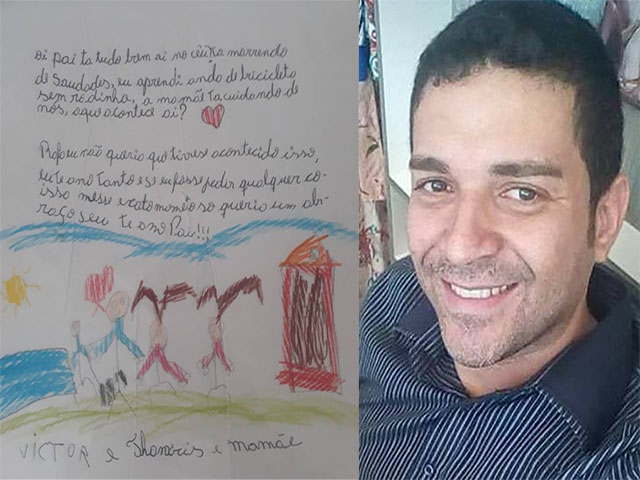 oi pai ta tudo bem ai no céu xa morrendo
de saudades, eu aprendi andо de bricicleta
sem rodinha, a mamãe ta cuidando de
nós, o que acontece ai?
eu não queria que tivese acontecido isso,
eu te amo tanto e se eu fosse pedir qualquer co-
isso nese exato momẽto so queria um ab-
raço seu te amo Pai!!!
VICTOR e e mamãe